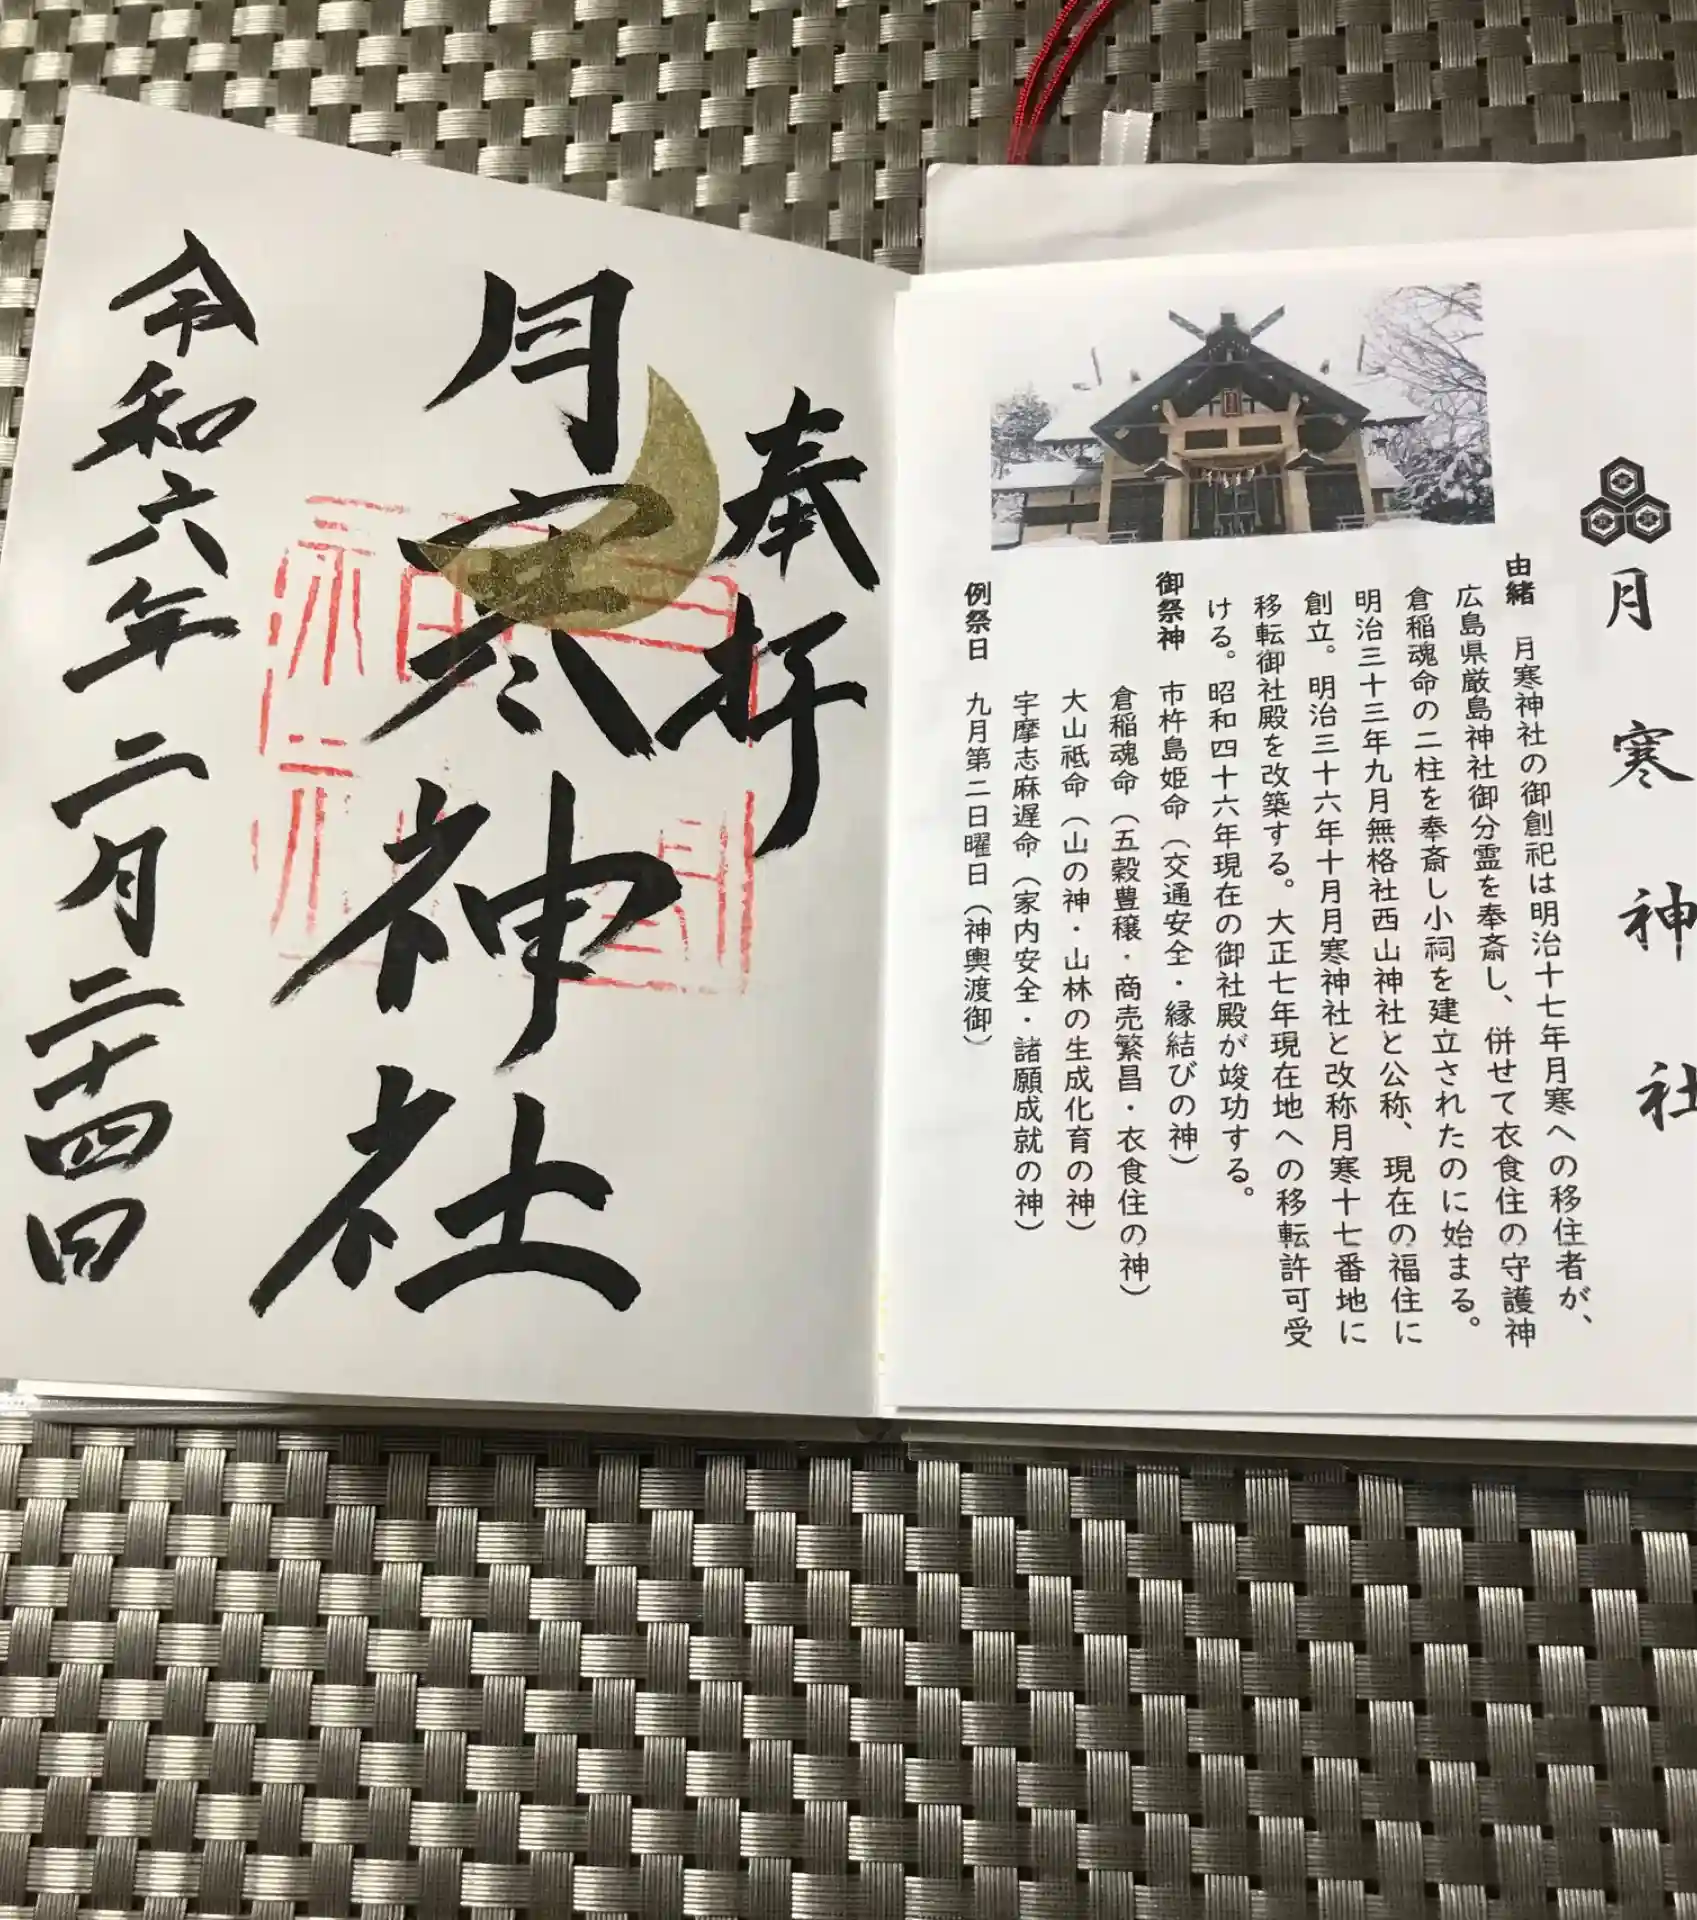 月寒神社
由緒　月寒神社の御創祀は明治十七年月寒への移住者が、
広島県厳島神社御分霊を奉斎し、併せて衣食住の守護神
倉稲魂命の二柱を奉斎し小祠を建立されたのに始まる。
明治三十三年九月無格社西山神社と公称、現在の福住に
創立。明治三十六年十月月寒神社と改称月寒十七番地に
移転御社殿を改築する。大正七年現在地への移転許可受
ける。昭和四十六年現在の御社殿が竣功する。
御祭神　市杵島姫命（交通安全・縁結びの神）
倉稲魂命（五穀豊穣・商売繁昌・衣食住の神）
大山祗命（山の神・山林の生成化育の神）
宇摩志麻遅命（家内安全・諸願成就の神）
例祭日　九月第二日曜日（神輿渡御）
奉拝
月寒神社
令和六年二月二十四日